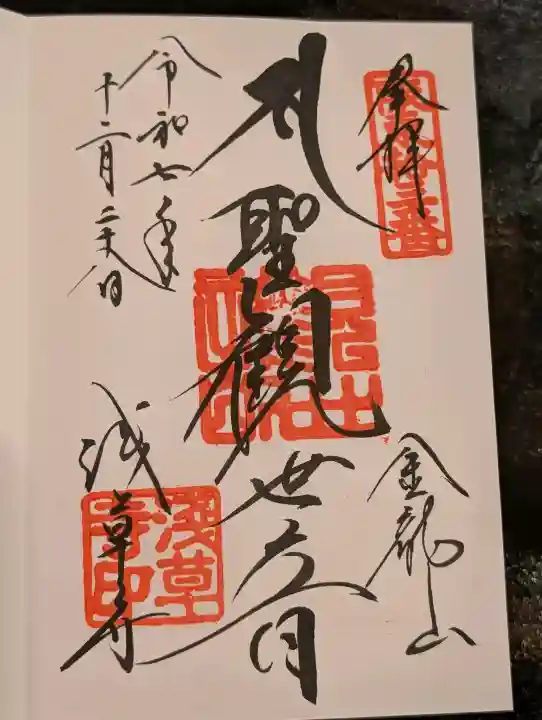 奉拝
金龍山
聖観世音
浅草寺
令和七年
十二月二十八日
浅草寺印